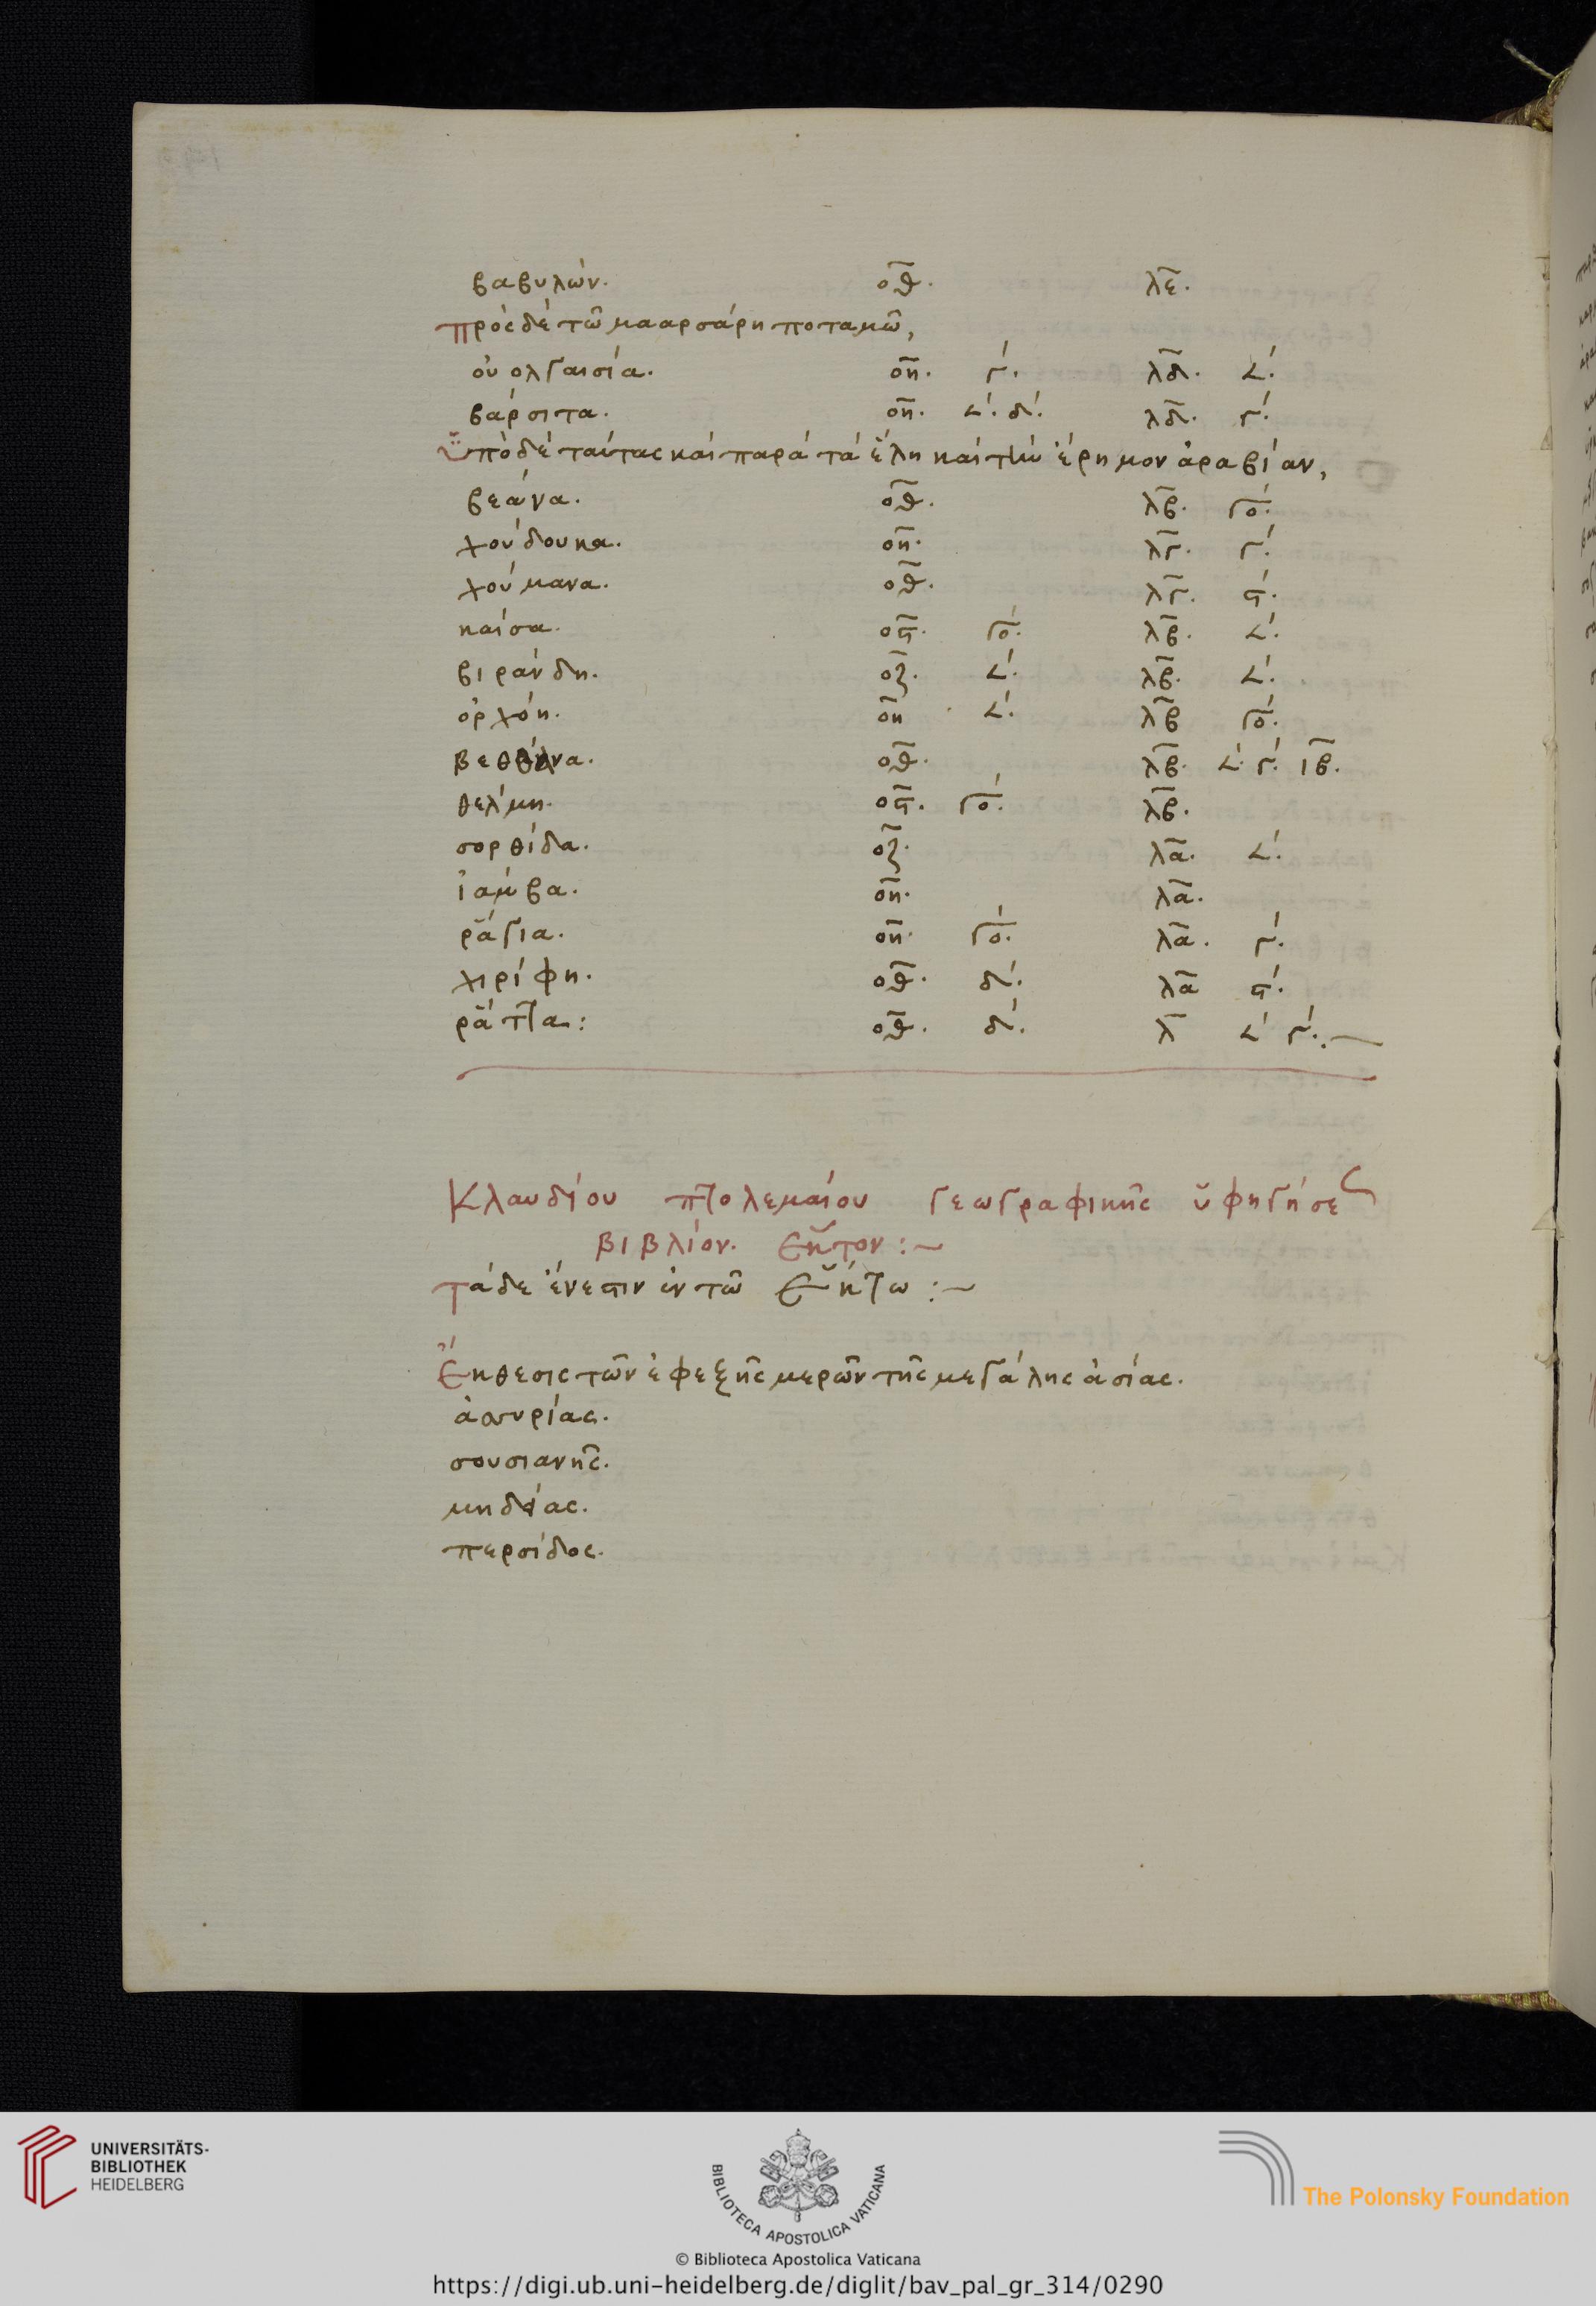 βαβυλών. οθ. λε.
πρὸς δὲ τῶ μααρσάρη ποταμῶ,
οὐολγαισία. οη. γ΄. λδ. 𐅵΄.
βάρσιτα. οη. 𐅵΄. δ΄. λδ. γ΄.
ὑπὸ δὲ ταύτας καὶ παρὰ τὰ ἕλη καὶ τὴν ἔρημον ἀραβίαν,
βεάνα. οθ. λβ. γο΄.
χούδουκα. οη. λγ. γ΄.
χούμανα. οθ. λγ. ϛ΄.
καίσα. οϛ. γο΄. λβ. 𐅵΄.
βιράνδη. οζ. 𐅵΄. λβ. 𐅵΄.
ὀρχόη. οη 𐅵΄. λβ γο΄.
οθ. λβ. 𐅵΄. γ΄. ιβ.
θελμη. οϛ. γο΄. λβ.
σορθίδα. οζ. λα. 𐅵΄.
ἰαμβα. οη. λα.
ῥάγια. οη. γο΄. λα. γ΄.
χιρίφη. οθ. δ΄. λα ϛ΄.
ῥάττα: οθ. δ΄. λ 𐅵΄ γ΄.
Κλαυδίου πτολεμαίου γεωγραφικῆς ὑφηγήσε
βιβλίον. ἕκτον:~
τάδε ἔνεστιν ἐν τῶ ἕκτω:~
Ἔκθεσις τῶν ἐφεξῆς μερῶν τῆς μεγάλης ἀσίας.
ἀσσυρίας.
σουσιανῆς.
μηδίας.
περσίδος.
UNIVERSITÄTS-
BIBLIOTHEK
HEIDELBERG
BIBLIOTECA APOSTOLICA VATICANA
The Polonsky Foundation
© Biblioteca Apostolica Vaticana
https://digi.ub.uni-heidelberg.de/diglit/bav_pal_gr_314/0290